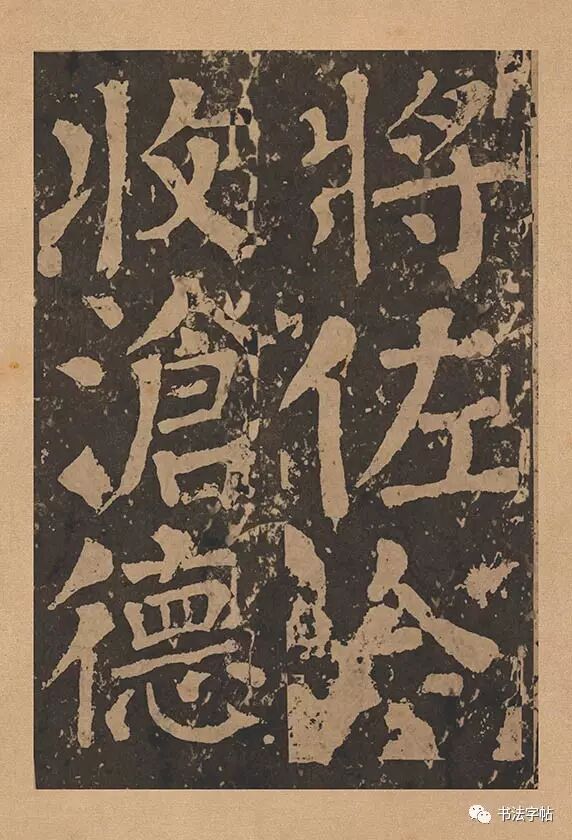 將佐
收滄德
书法字帖